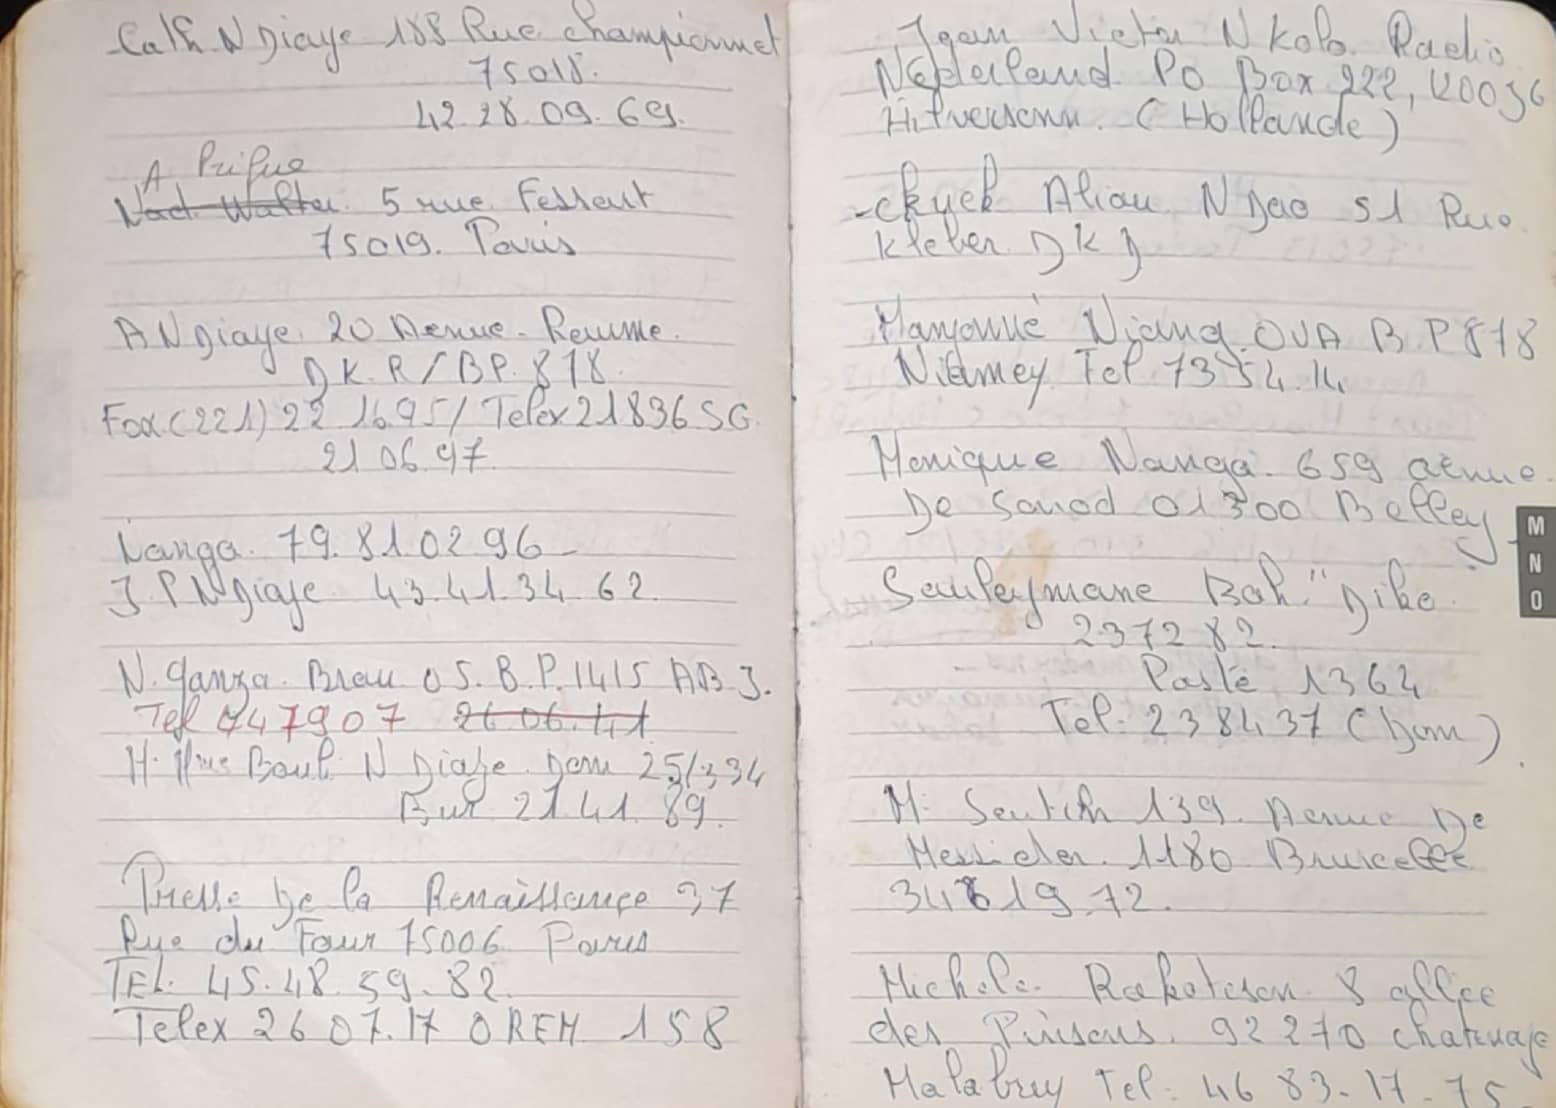 Cath N Diaye 188 Rue championnet
75018.
42.28.09.69.
A Prifue
Nad. Walter. 5 rue Fessart
75019. Paris
A N Diaye. 20 Avenue - Roume.
DK.R/BP. 878.
Fax (221) 22 16 95 / Telex 21836 SG.
21 06 97.
Nanga. 79.81 02 96 -
J.P N Diaye 43.41.34 62.
N. ganza. Brau 05. B.P. 1415 ABJ.
Tel 447907 26 06.41
M. Mme Baub N Diaye. Dom 25/334
Bur 21.41.89.
Presse De la Renaissance 37
Rue du Four 75006 Paris
TEL. 45.48.59.82.
Telex 26 07.17 OREM 158
Jean Victor N Kolo. Radio
Nederland PO Box 222, 1200JG
Hilversenn. (Hollande)
- Chyek Aliou N Dao 51 Rue
Kleber DKD
Manyoué Niang. OUA B P 878
Niamey. Tel 73 54.14
Monique Nanga. 659 avenue
De Sonod 01300 Belley
MNO
Souleymane Bah. "Diko
2372 82.
Poste 1364
Tel: 238437 (Dom)
M. Soutich 139. Avenue De
Messidor. 1180 Bruxelles
348 19.72.
Michele. Rakotoson 8 allée
des Pinsons. 92270 chatenay
Malabry Tel: 46 83-17-75